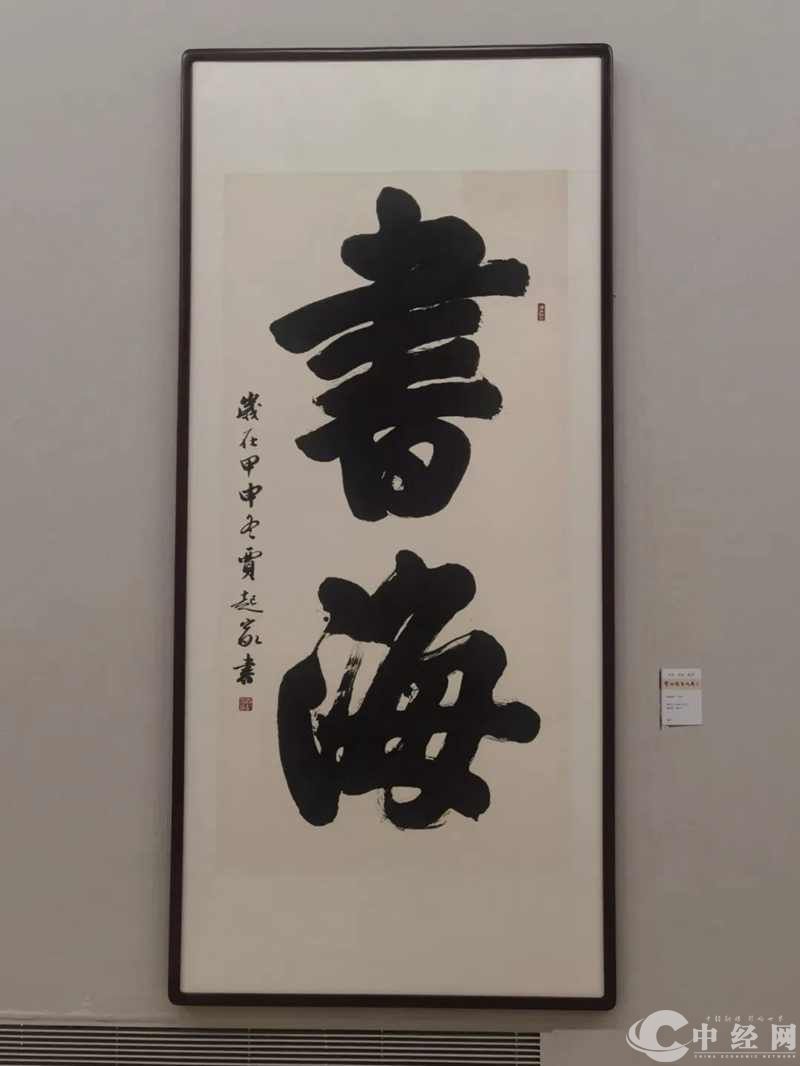 書海
歲在甲申冬賈起家書
中经网
CHINA ECONOMIC NETWORK